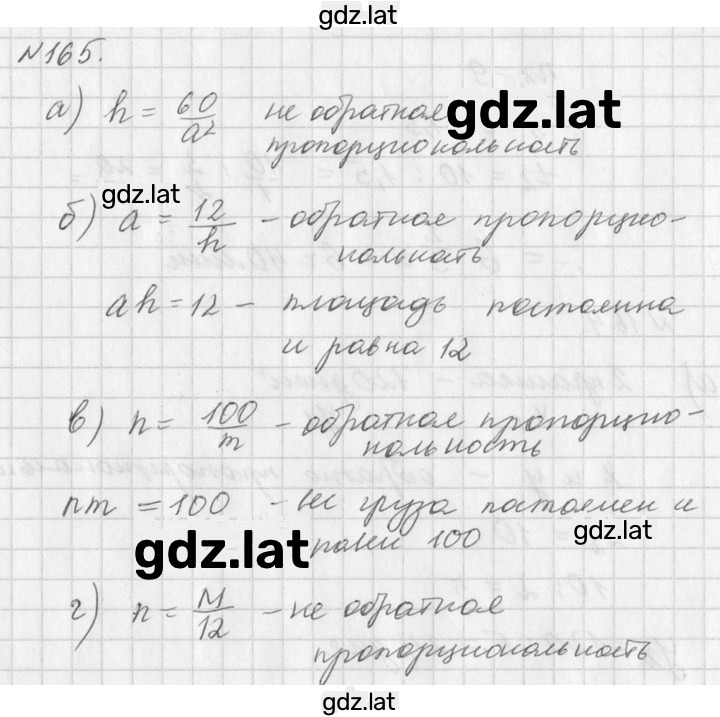 gdz.lat
№165.
а) h = 60/a² не обратная
gdz.lat
пропорциональность
gdz.lat
б) a = 12/h - обратная пропорцио-
нальность
ah = 12 - площадь постоянна
и равна 12
в) n = 100/m - обратная пропорцио-
нальность
nm = 100 - груза постоянен и
gdz.lat
gdz.lat
100
г) n = M/12 - не обратная
пропорциональность
gdz.lat